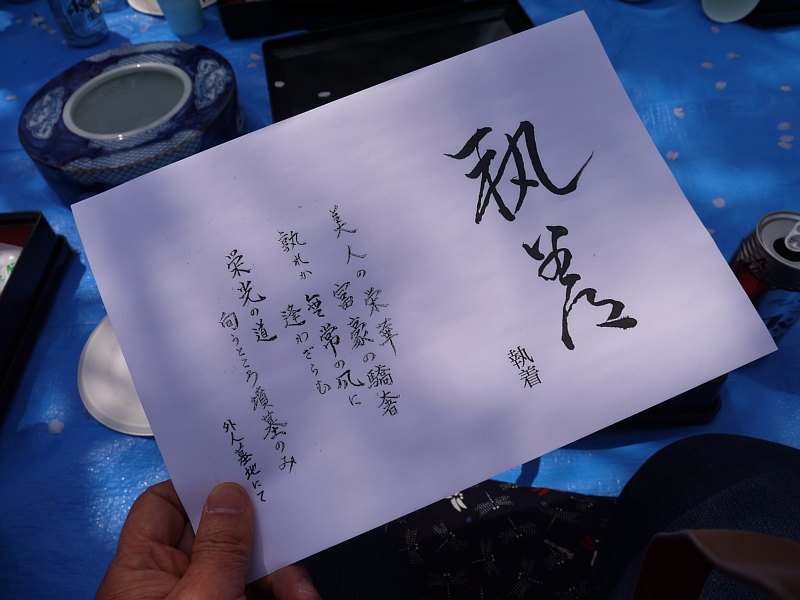 執着
執着
美人の栄華
富豪の驕奢
孰れか無常の風に
逢わざらむ
栄光の道
向うところ墳墓のみ
外人墓地にて